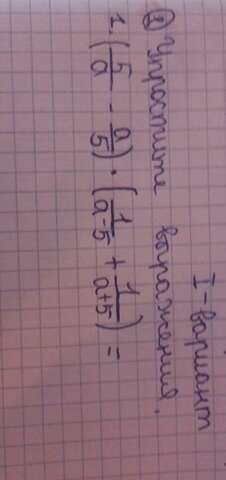 I-вариант
② Упростите выражение.
1. (5/a - a/5) · (1/a-5 + 1/a+5) =